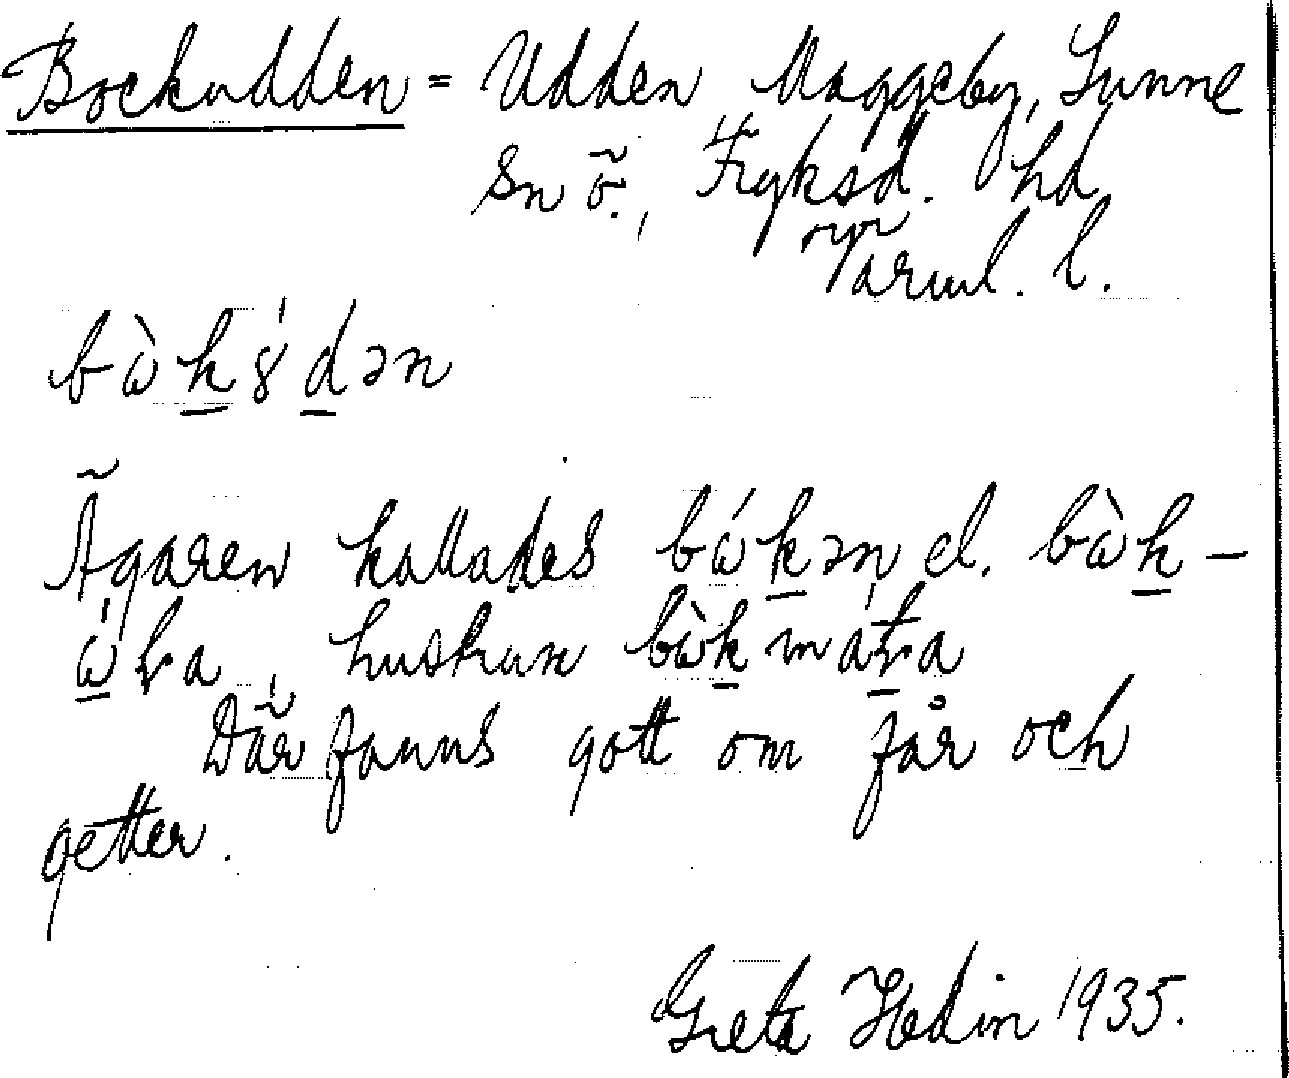 Bockudden = Udden, Maggeby, Sunne
sn ö., Fryksd. hd
Värml. l.
bὼk8́dən
Ägaren kallades bώkən el. bὼk-
ώʟa, huskun bὼkmáʈa
Där fanns gott om får och
getter.
Greta Hedin 1935.